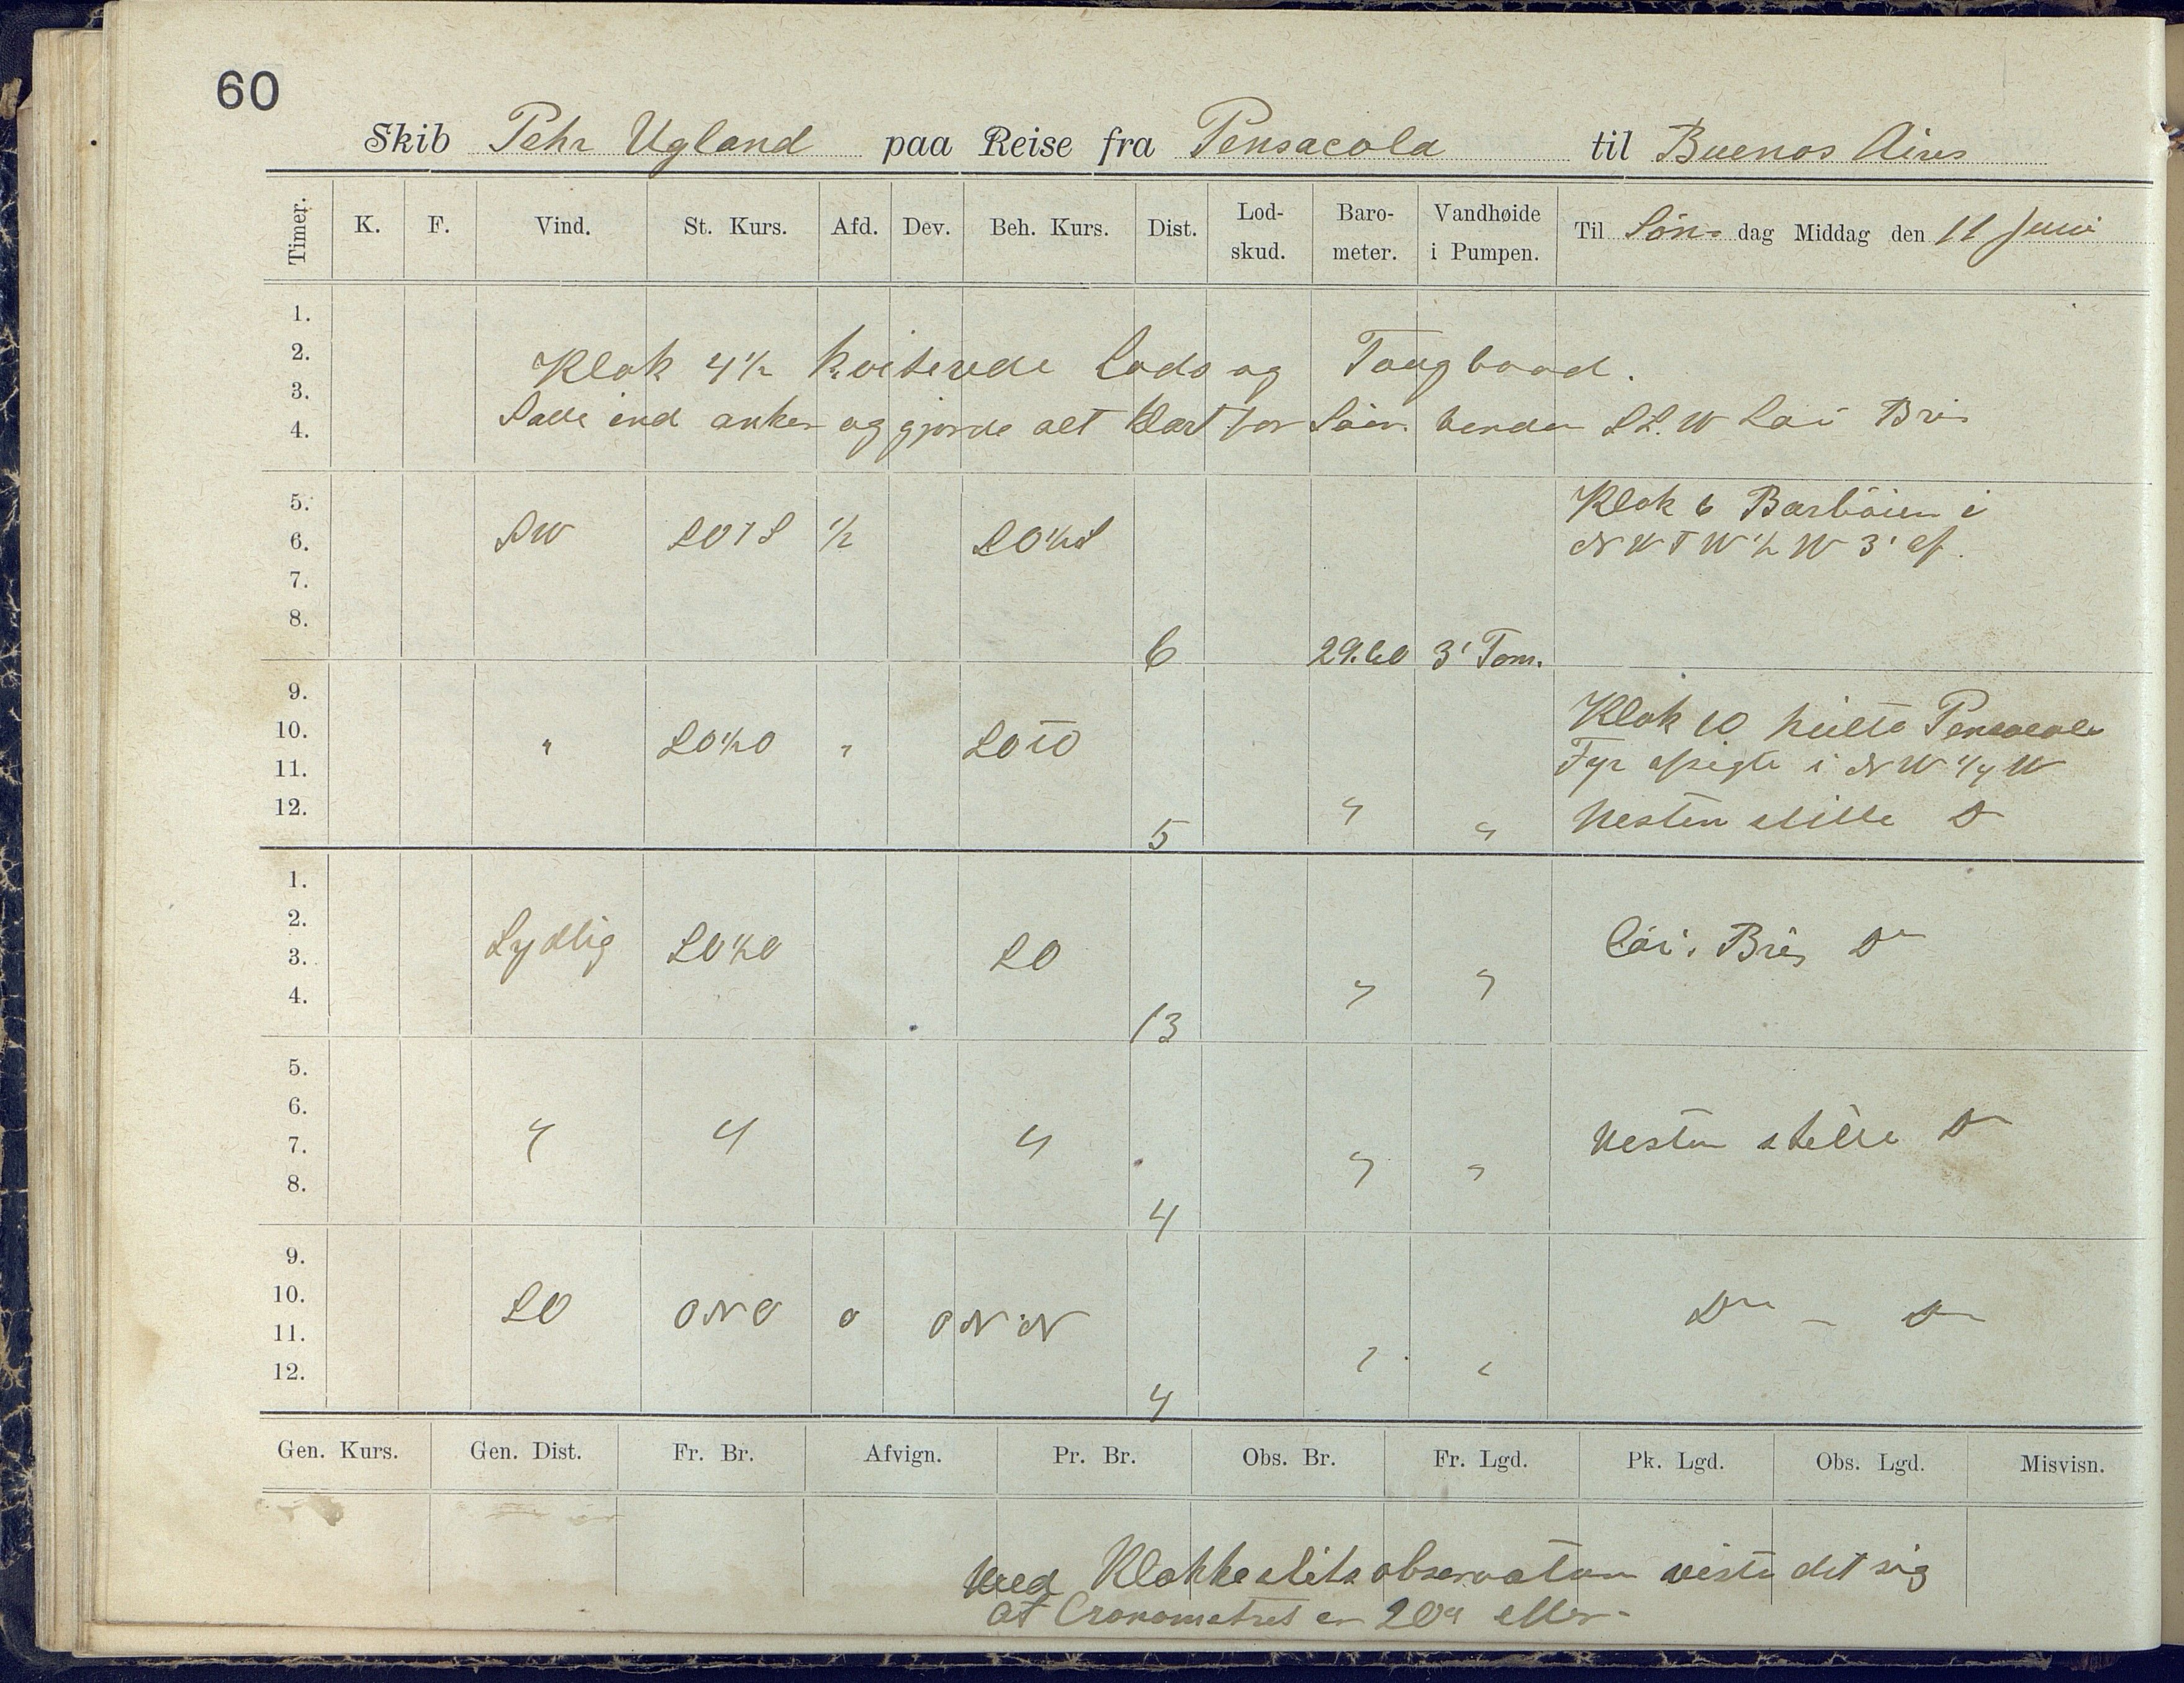 60
Skib Pehr Ugland paa Reise fra Pensacola til Buenos Aires
Timer. K. F. Vind. St. Kurs. Afd. Dev. Beh. Kurs. Dist. Lod-skud. Baro-meter. Vandhøide i Pumpen. Til Søn- dag Middag den 11 Juni
1.
2. Klok 4½ kviterede Lods og Taugbaad.
3.
4. ind anker og gjorde alt klart for Söen. S.S.W Lai Bris
5. Klok 6 Barböien i
6. SW SOTS ½ SO½S NWTW½W 3' af.
7.
8. 6 29.60 3' Tom.
9. Klok 10 Pensacola
10. " SO½O " SOTO
11. Fyr afsigte i NW¼W
12. 5 " " Nesten stille D
1.
2. Sydlig SO½O Lai. Bris D
3. SO
4. 13 " "
5.
6.
7. " " " Nesten stille D
8. 4 " "
9.
10. SO ONO 0 D - D
11.
12. 4 " "
Gen. Kurs. Gen. Dist. Fr. Br. Afvign. Pr. Br. Obs. Br. Fr. Lgd. Pk. Lgd. Obs. Lgd. Misvisn.
Ved Klokkeslitsobservation viste det sig
at Cronometret er 20s efter-